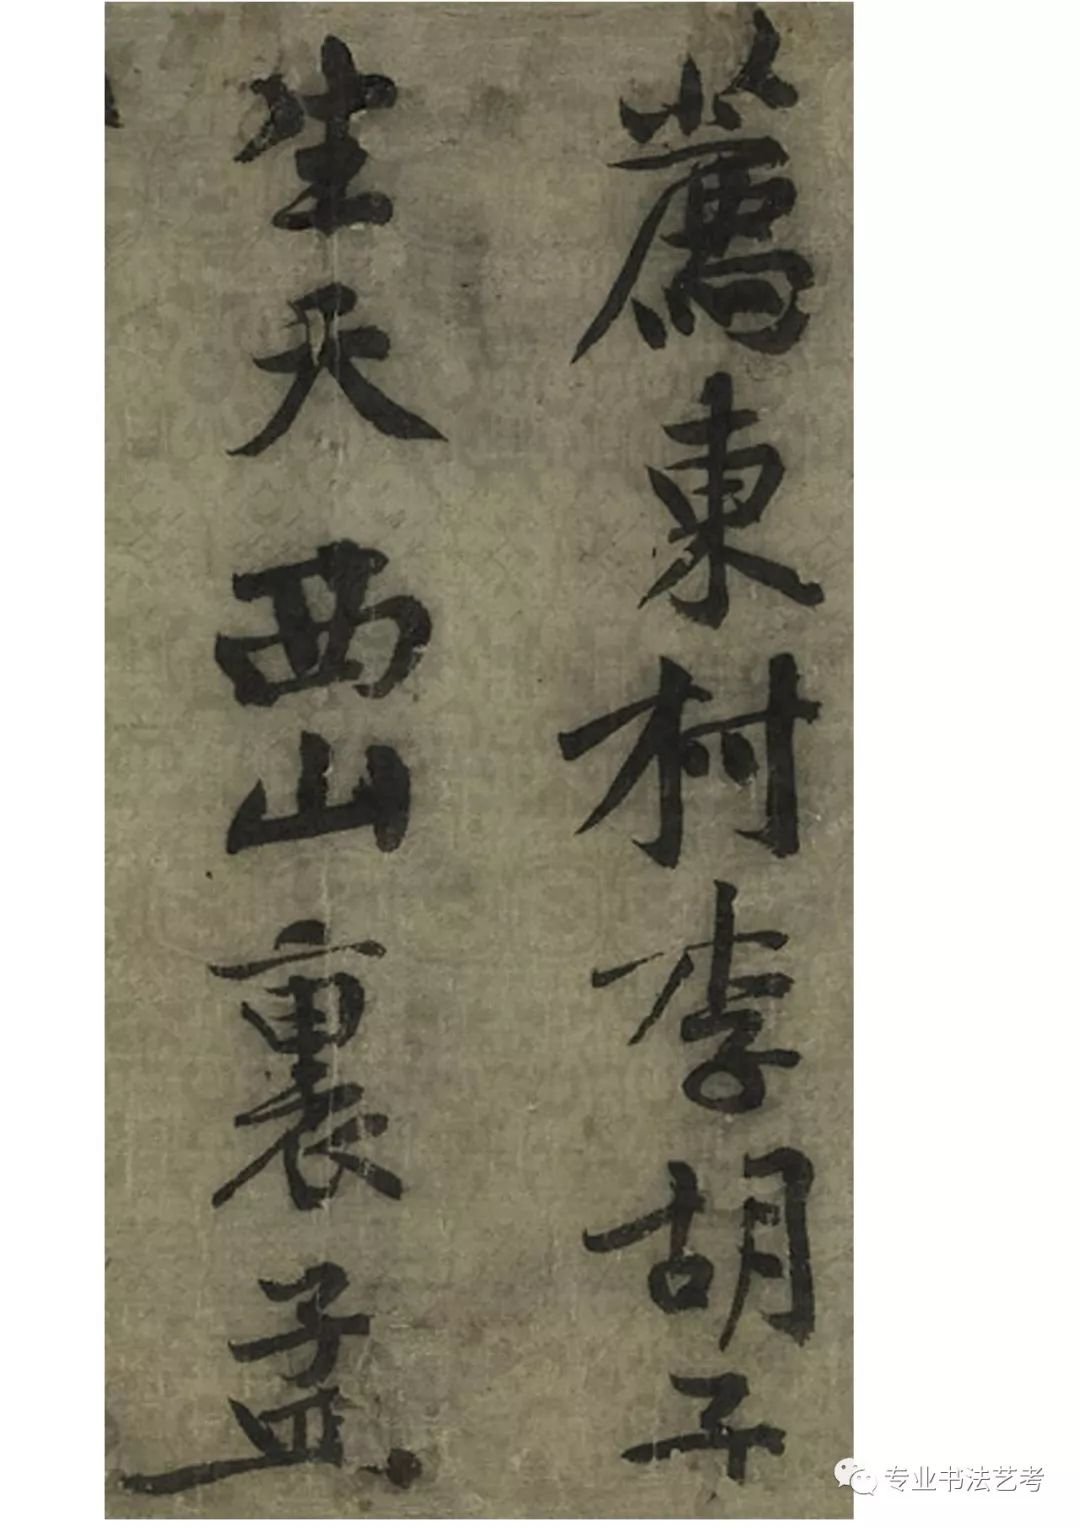 薦東村李胡子
生天西山裏孟
专业书法艺考